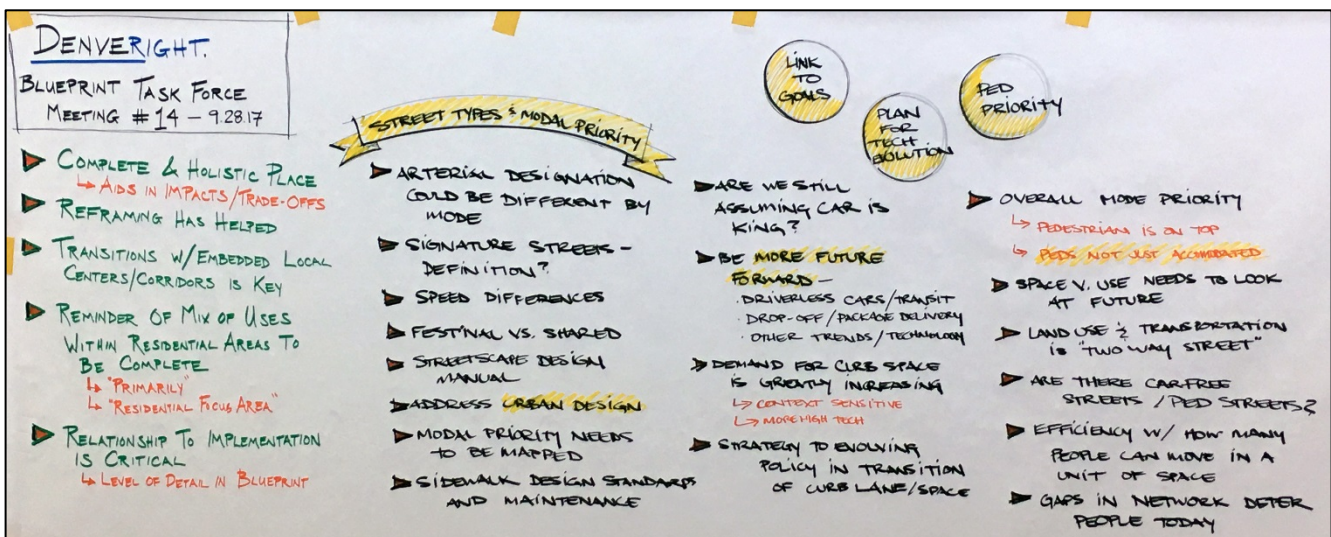 DENVERIGHT.
BLUEPRINT TASK FORCE
MEETING #14 – 9.28.17
COMPLETE & HOLISTIC PLACE
↳ AIDS IN IMPACTS/TRADE-OFFS
REFRAMING HAS HELPED
TRANSITIONS W/EMBEDDED LOCAL
CENTERS/CORRIDORS IS KEY
REMINDER OF MIX OF USES
WITHIN RESIDENTIAL AREAS TO
BE COMPLETE
↳ "PRIMARILY"
↳ "RESIDENTIAL FOCUS AREA"
RELATIONSHIP TO IMPLEMENTATION
IS CRITICAL
↳ LEVEL OF DETAIL IN BLUEPRINT
STREET TYPES & MODAL PRIORITY
ARTERIAL DESIGNATION
COULD BE DIFFERENT BY
MODE
SIGNATURE STREETS –
DEFINITION?
SPEED DIFFERENCES
FESTIVAL VS. SHARED
STREETSCAPE DESIGN
MANUAL
ADDRESS URBAN DESIGN
MODAL PRIORITY NEEDS
TO BE MAPPED
SIDEWALK DESIGN STANDARDS
AND MAINTENANCE
LINK
TO
GOALS
PLAN
FOR
TECH
EVOLUTION
PED
PRIORITY
ARE WE STILL
ASSUMING CAR IS
KING?
BE MORE FUTURE
FORWARD –
· DRIVERLESS CARS/TRANSIT
· DROP-OFF/PACKAGE DELIVERY
· OTHER TRENDS/TECHNOLOGY
DEMAND FOR CURB SPACE
IS GREATLY INCREASING
↳ CONTEXT SENSITIVE
↳ MORE HIGH TECH
STRATEGY TO EVOLVING
POLICY IN TRANSITION
OF CURB LANE/SPACE
OVERALL MODE PRIORITY
↳ PEDESTRIAN IS ON TOP
↳ PEDS NOT JUST ACCOMODATED
SPACE V. USE NEEDS TO LOOK
AT FUTURE
LAND USE & TRANSPORTATION
IS "TWO WAY STREET"
ARE THERE CAR FREE
STREETS / PED STREETS?
EFFICIENCY W/ HOW MANY
PEOPLE CAN MOVE IN A
UNIT OF SPACE
GAPS IN NETWORK DETER
PEOPLE TODAY